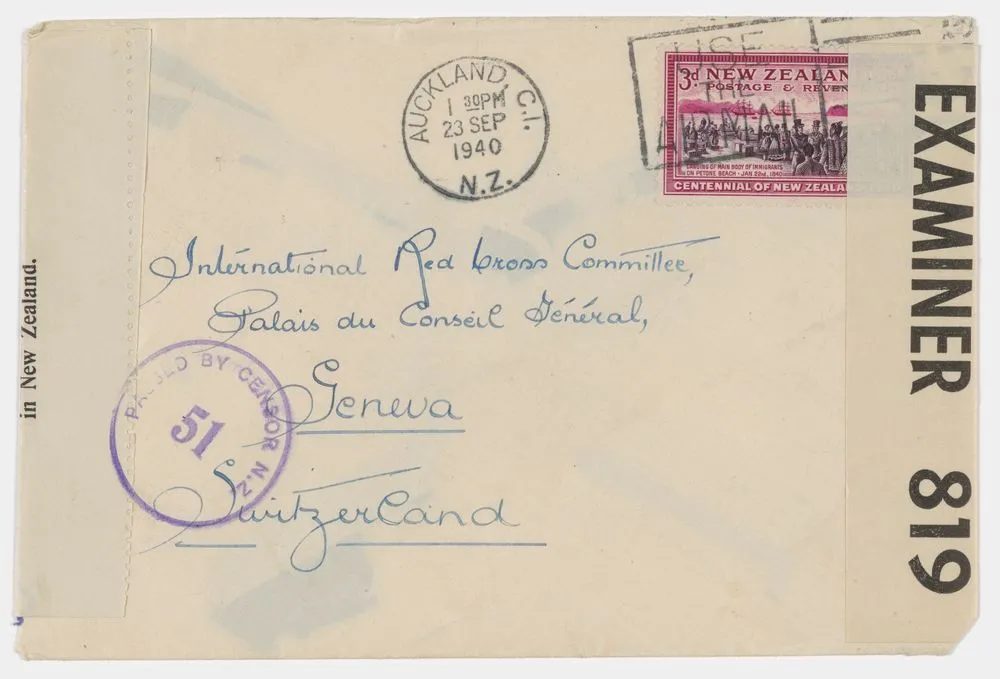 AUCKLAND, C.1.
1 30PM
23 SEP
1940
N.Z.
USE
THE
AIR MAIL
3d NEW ZEALAN
POSTAGE & REVEN
LANDING OF MAIN BODY OF IMMIGRANTS
ON PETONE BEACH · JAN 22nd, 1840
CENTENNIAL OF NEW ZEALA
International Red Cross Committee,
Palais du Conseil Général,
Geneva
Switzerland
PASSED BY CENSOR N.Z.
51
in New Zealand.
EXAMINER 819